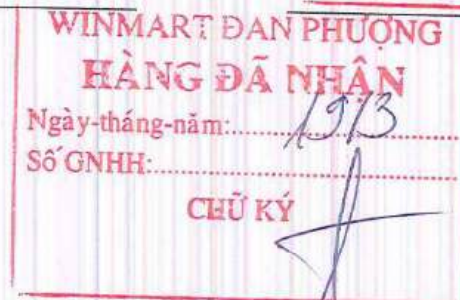 WINMART ĐAN PHƯỢNG
HÀNG ĐÃ NHẬN
Ngày-tháng-năm:.......19/3.......
Số GNHH:..............................
CHỮ KÝ